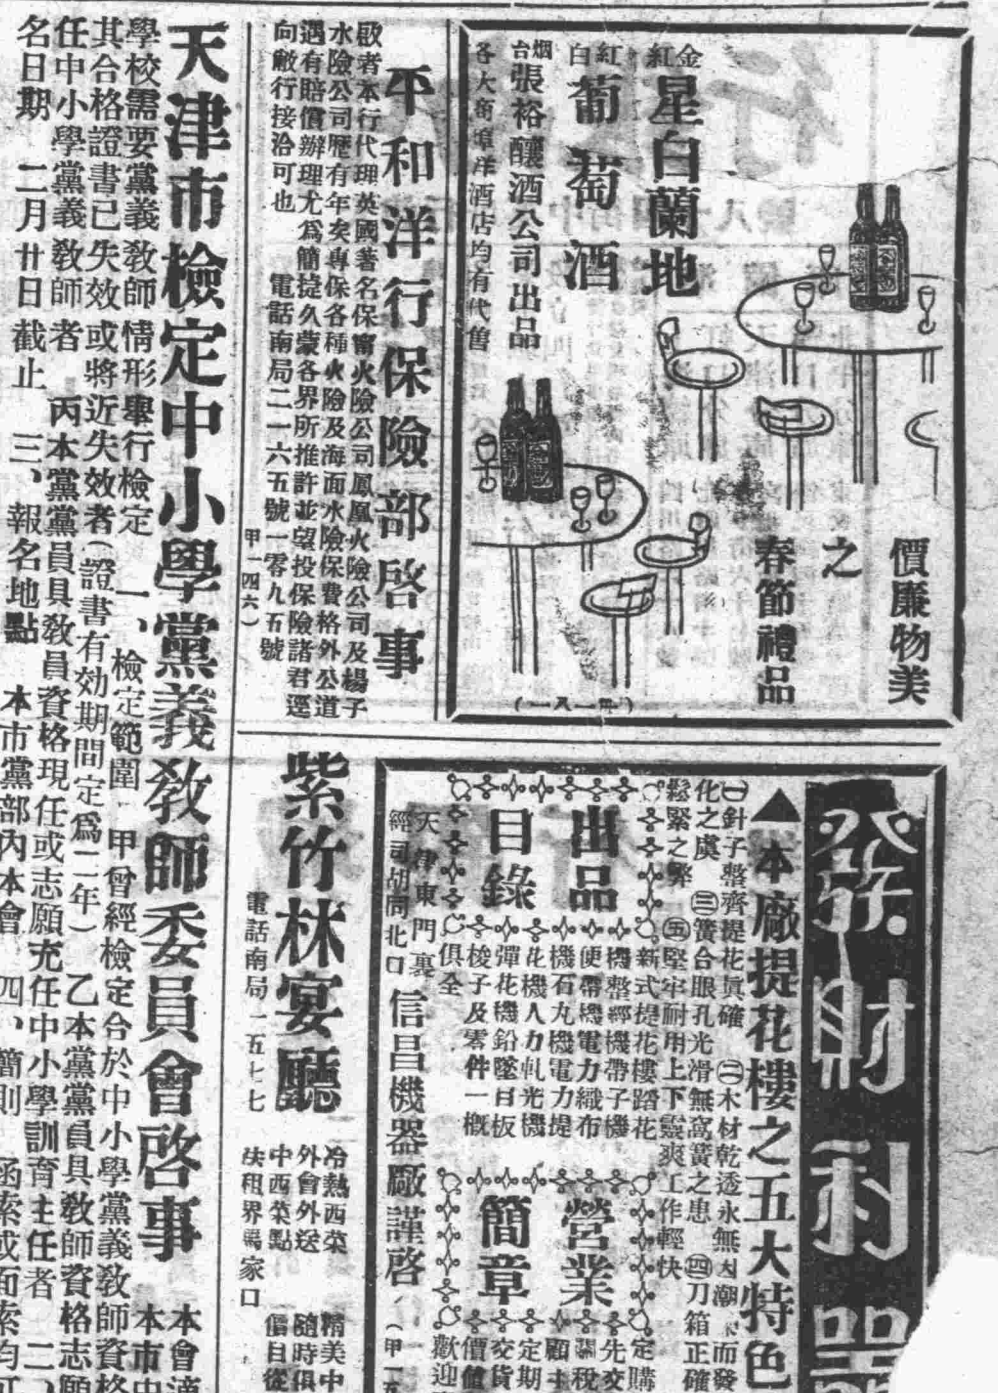 金星白蘭地
紅紅
紅白葡萄酒
烟台張裕釀酒公司出品
各大商埠洋酒店均有代售
價廉物美
之
春節禮品
平和洋行保險部啓事
啟者本行代理英國著名保甯火險公司鳳凰火險公司及楊子
水險公司歷有年矣專保各種火險及海面水險保費格外公道
遇有賠償辦理尤爲簡捷久蒙各界所推許並望投保險諸君逕
向敝行接洽可也 電話南局二一六五號一零九五號
甲一四六)
天津市檢定中小學黨義教師委員會啓事
本會
本市中
學校需要黨義教師情形舉行檢定 一、檢定範圍 甲曾經檢定合於中小學黨義教師資格
其合格證書已失效或將近失效者(證書有効期間定爲二年) 乙本黨黨員具教師資格志願
任中小學黨義教師者 丙本黨黨員具教員資格現任或志願充任中小學訓育主任者 二、
名日期 二月廿日截止 三、報名地點 本市黨部內本會 四、簡則 函索或面索均可
發財利器
▲本廠提花樓之五大特色
㊀針子整齊提花眞確 ㊁木材乾透永無因潮 而發
化之虞 ㊂簧合眼孔光滑無窩簧之患 ㊃刀箱正確
鬆緊之弊 ㊄堅牢耐用上下靈爽工作輕快
出品目錄
新式提花樓踏花
機整經機帶子機
便帶機電力織布
機石丸機電力提
花機人力軋光機
彈花機鉛墜目板
梭子及零件一概
俱全
營業簡章
定購
先交
關稅
顧主
定期
交貨
價値
歡迎
天津東門裏
經司胡同北口
信昌機器廠謹啓
紫竹林宴廳
電話南局一五七七
冷熱西菜
外會外送
中西菜點
法租界楊家口
精美中
隨時俱
價目從